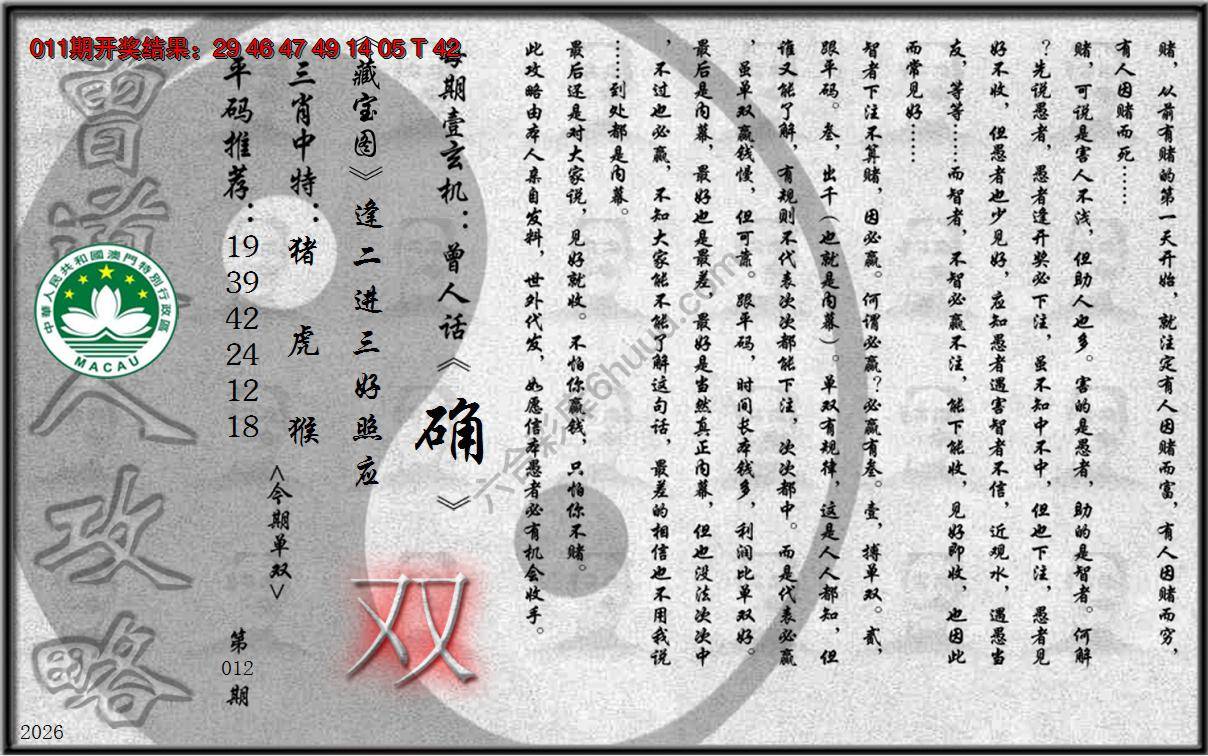 011期开奖结果：29 46 47 49 14 05 T 42
赌，从前有赌的第一天开始，就注定有人因赌而富，有人因赌而穷，
有人因赌而死……
赌，可说是害人不浅，但助人也多。害的是愚者，助的是智者。何解
？先说愚者，愚者逢开奖必下注，虽不知中不中，但也下注，愚者见
好不收，但愚者也少见好，应知愚者遇害智者不信，近观水，遇愚当
友，等等……而智者，不智必赢不注，能下能收，见好即收，也因此
而常见好……
智者下注不算赌，因必赢。何谓必赢？必赢有叁。壹，搏单双。贰，
跟平码。叁，出千（也就是内幕）。单双有规律，这是人人都知，但
谁又能了解，有规则不代表次次都能下注，次次都中。而是代表必赢
，虽单双赢钱慢，但可靠。跟平码，时间长本钱多，利润比单双好。
最后是内幕，最好也是最差，最好是当然真正内幕，但也没法次次中
，不过也必赢，不知大家能不能了解这句话，最差的相信也不用我说
……到处都是内幕。
最后还是对大家说，见好就收。不怕你赢钱，只怕你不赌。
此攻略由本人亲自发料，世外代发，如愿信本愚者必有机会收手。
每期壹玄机：曾人话《确》
《藏宝图》逢二进三好照应
双
三肖中特：猪 虎 猴
<今期单双>
平码推荐：19 39 42 24 12 18
第012期
曾道人攻略
中華人民共和國澳門特別行政區
MACAU
六合彩库6huu.com
2026